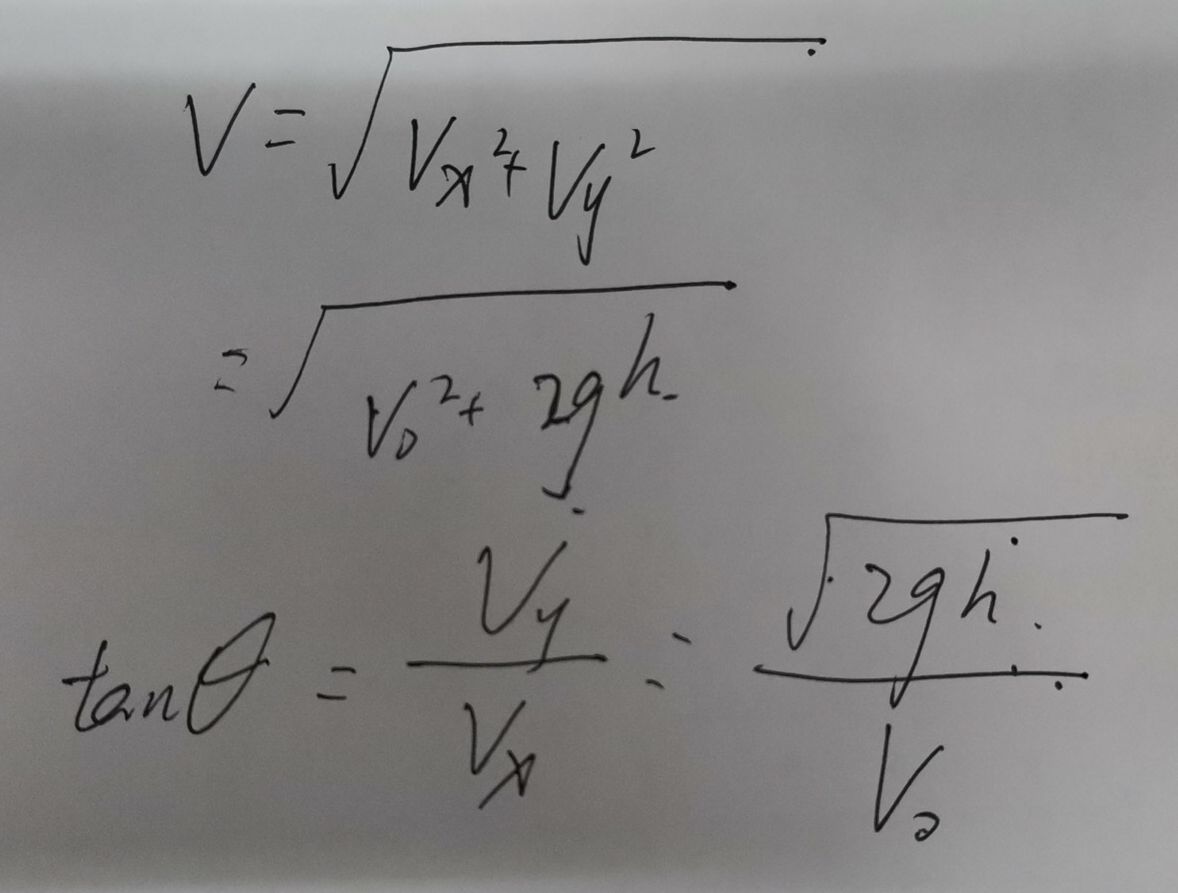 V = √(Vx² + Vy²)
= √(V₀² + 2gh)
tanθ = Vy/Vx = √(2gh)/V₀